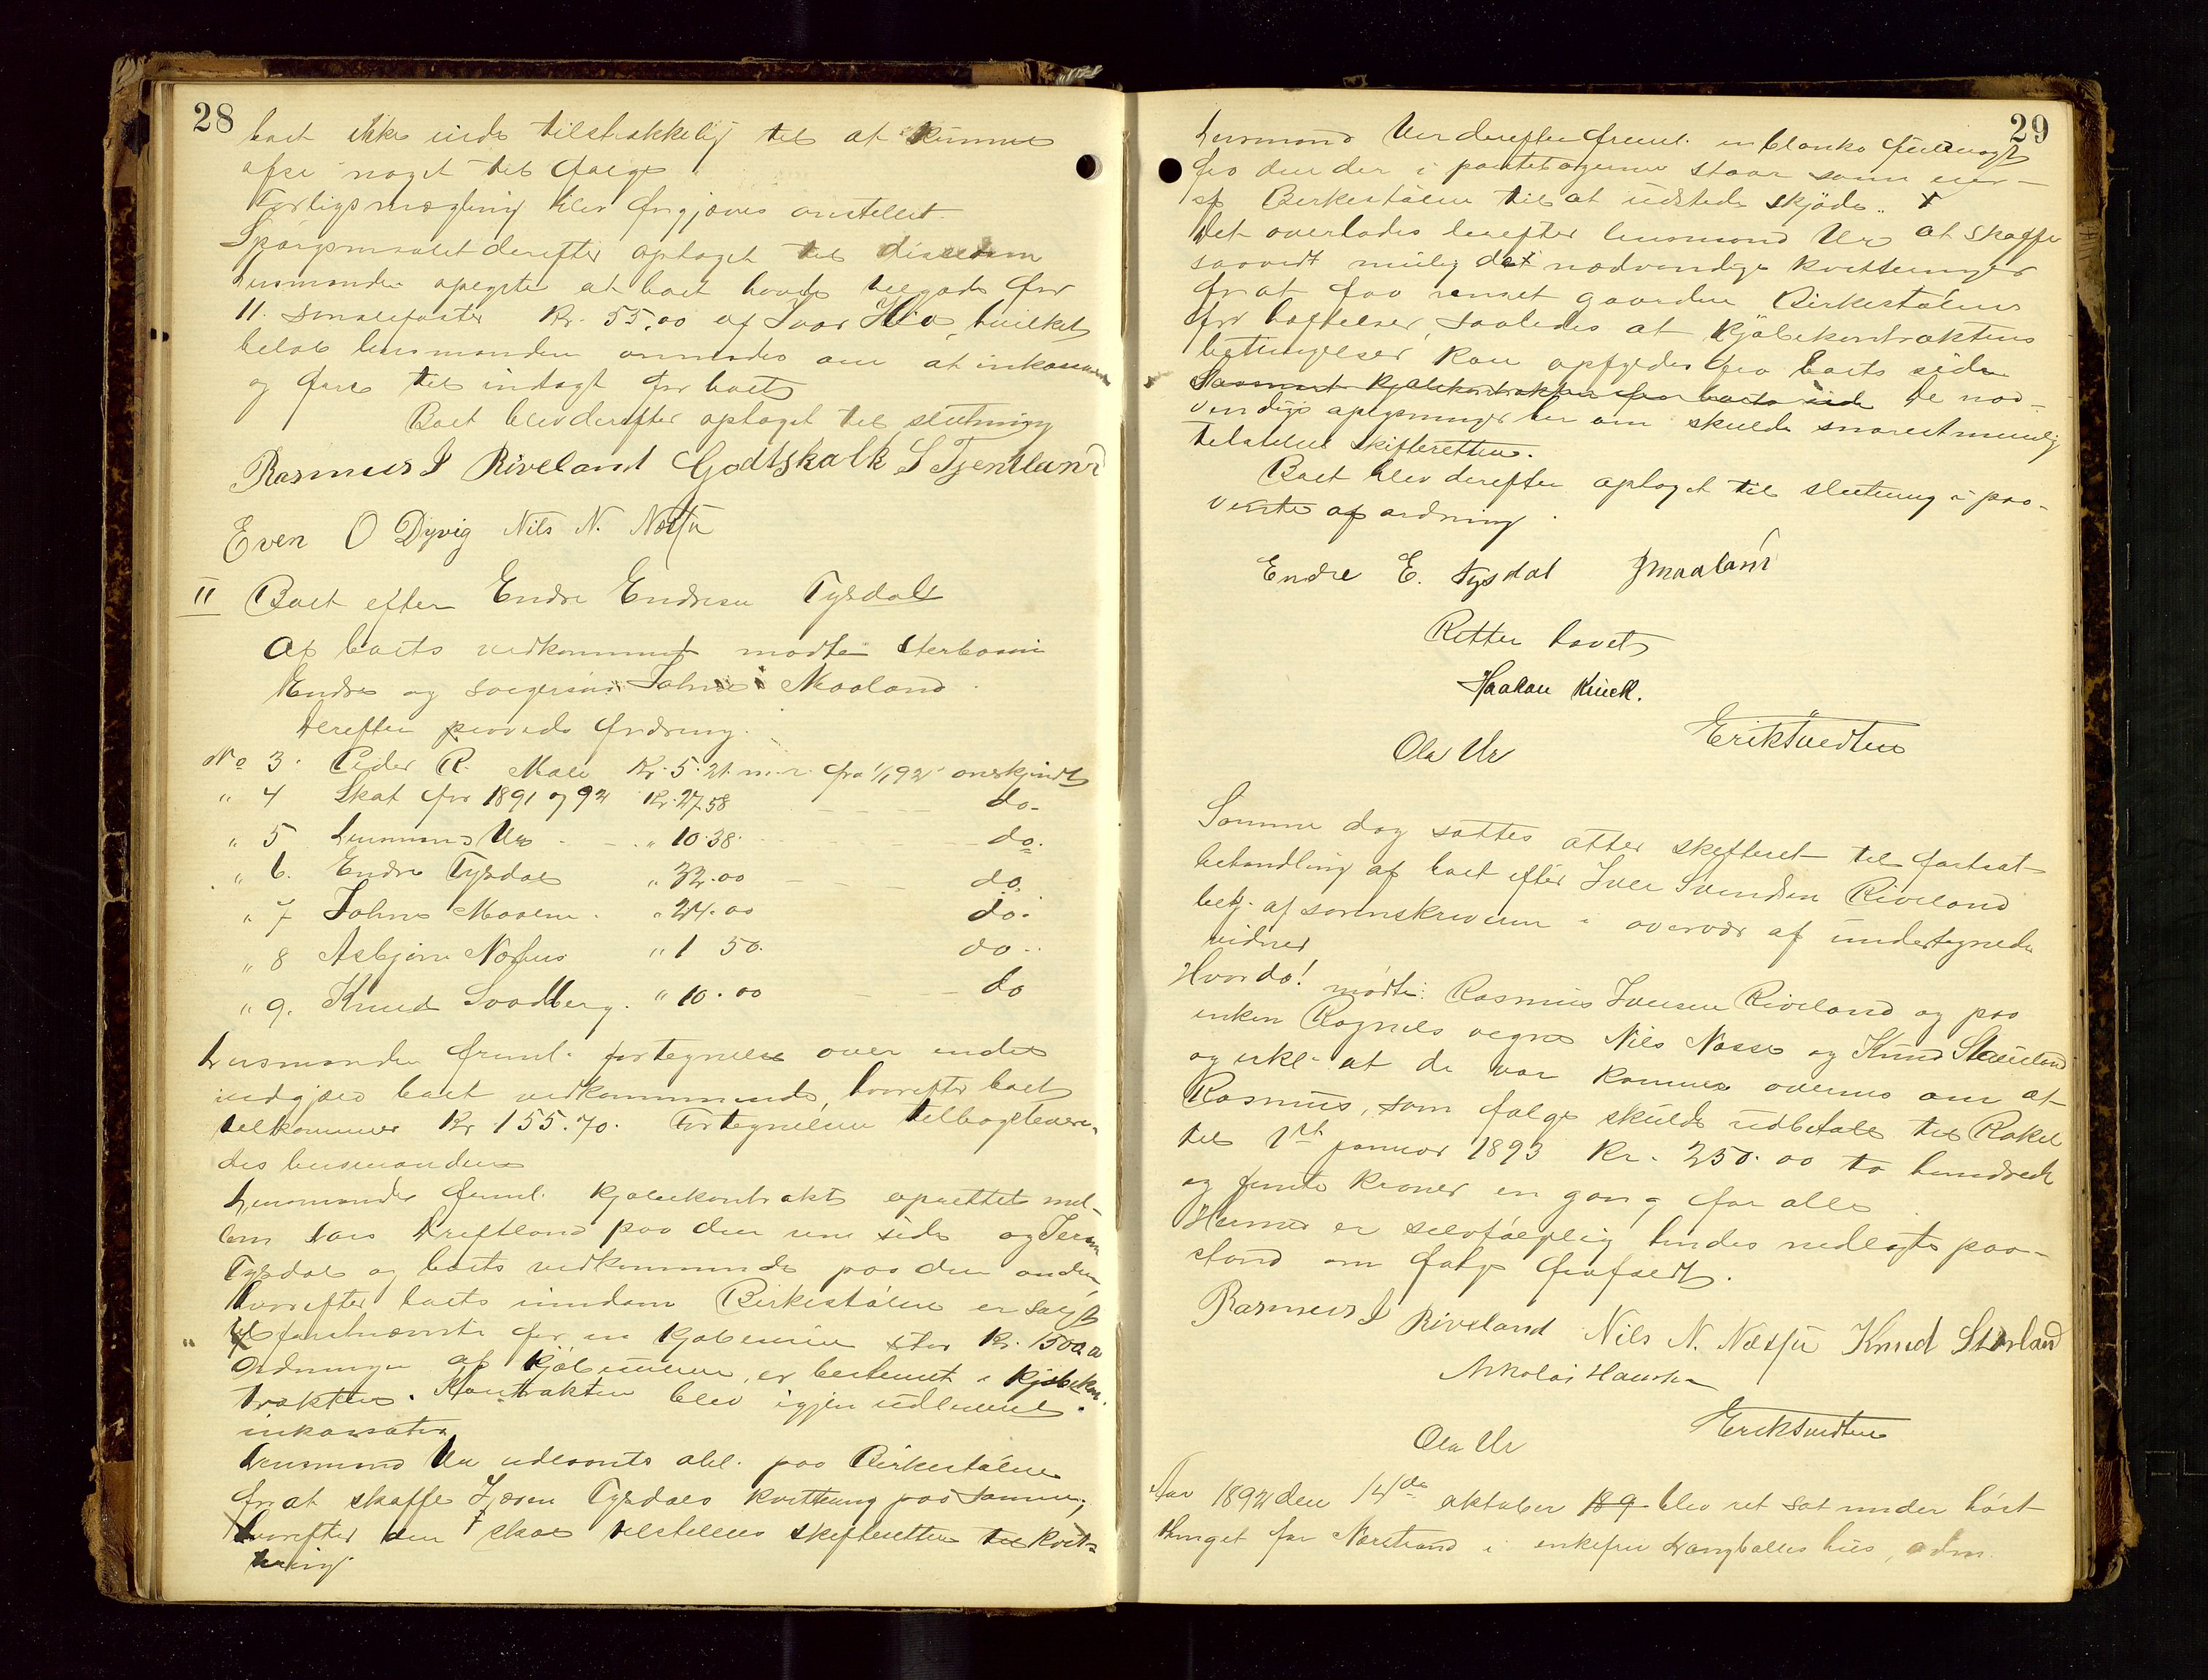 28
boet ikke inde tilstrækkelig til at kunne
afse noget til følge
Forligsmægling blev forgjæves anstellet.
Spörgsmaalet derefter optaget til decision
Lensmanden opgste at boet havde tilgode for
11. smalefoster Kr. 55,00 af Ivar Hio, hvilket
belöb lensmanden anmodes om at inkassere
og före til indtægt for boet
Boet blev derefter optaget til slutning
Rasmus I Riveland Godtskalk S Tjentland
Even O Dyvig Nils N. Næsse
II Boet efter Endre Endresen Tysdal
Af boets vedkommende mödte sterbosön
Endre og svigersön Johne Maaland.
Derefter prövedes fordring.
No 3. Peder R. Male Kr. 5.21. m. r. fra 1/1 92 anerkjendt
" 4 Skat for 1891 og 92 Kr. 27.58 do.
" 5 Lensmand Ur " 10.38. do.
" 6. Endre Tysdal " 32.00 do.
" 7 Johne Maaland " 24.00 do.
" 8 Asbjörn " 1 50. do.
" 9. Knud Svadberg. " 10.00 do
Lensmanden freml. fortegnelse over indt.
udgjæld boet vedkommende, hvorefter boet
tilkommer Kr 155.70. Fortegnelsen tilbageleveredes
lensmanden
Lensmanden freml. kjöbekontrakt oprettet mellem
Lars paa den ene side og
Tysdal og boets vedkommende paa den anden
hvorefter boets eiendom Birkestölen er solgt
til förstnævnte for en kjöbesum stor Kr. 1500.00
Ordningen af kjöbesummen er bestemt i kjöbekontrakten.
Kontrakten blev igjen udleveret.
inkassator
Lensmand Ur udlaante obl. paa Birkestölen
for at skaffe Tysdals kvittering paa samme,
hvorefter den skal tilstilles skifteretten til kvittering
29
Lensmand Ur derefter freml. en blanko fuldmagt
fra den der i pantebögerne staar som eier
af Birkestölen til at udstede skjöde.
Det overlodes herefter lensmand Ur at skaffe
saavidt mulig det nødvendige kvitteringer
for at faa renset gaarden Birkestölen
for heftelser, saaledes at kjöbekontraktens
betingelser kan opfyldes fra boets side
kjöbekontrakten fra boets side De nødvendige
oplysninger herom skulde snarest mulig
tilstilles skifteretten.
Boet blev derefter optaget til slutning i paavente
af ordning.
Endre E. Tysdal J Maaland
Retten hævet
Haakon Kinck.
Ola Ur Erik Tuedten
Samme dag sattes atter skifteret til fortsat
behandling af boet efter Iver Svendsen Riveland
betj. af sorenskriveren i overvær af undertegnede
vidner
Hvorda! mödte: Rasmus Iversen Riveland og paa
enken Ragnils vegne Nils Næsse og Knud Störland
og erkl. at de var kommen overens om at
Rasmus, som følge skulde udbetale til Rakel
til 1st januar 1893 Kr. 250.00 to hundrede
og femti kroner en gang for alle
Hermed er selvfølgelig hendes nedlagte paastand
om følge frafaldt.
Rasmus I Riveland Nils N. Næsse Knud Störland
Nikolai Hansen
Ola Ur Erik Tuedten
Aar 1892 den 14de oktober 189 blev ret sat under höstthinget
for Nærstrand i enkefru hus, adm.